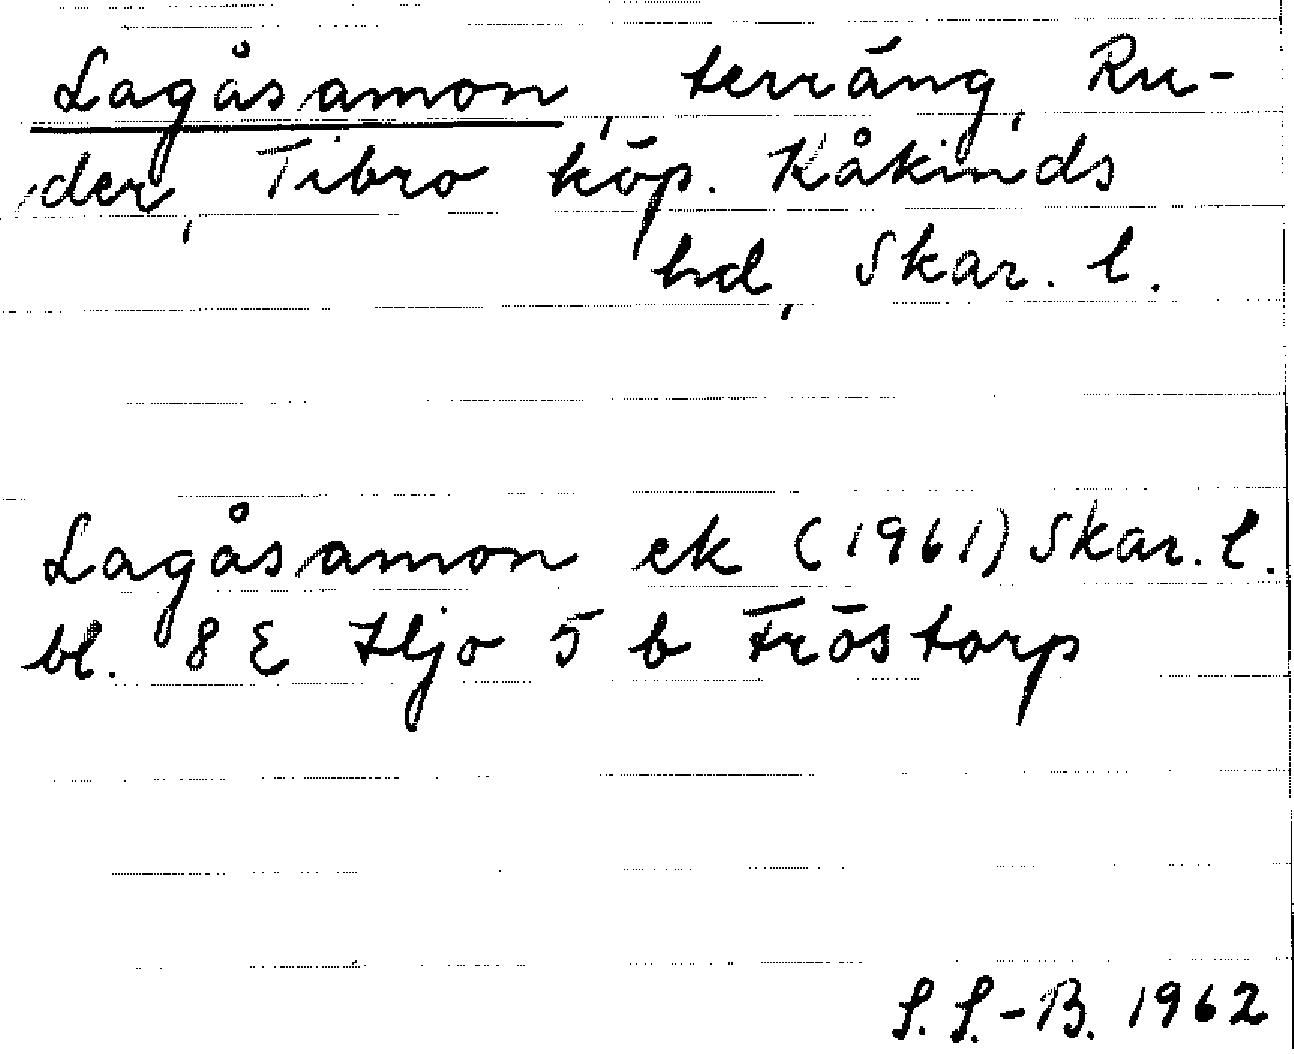 Lagåsamon, terräng, Ru-
der, Tibro köp. Kåkinds
hd, Skar. l.
Lagåsamon ek (1961) Skar. l.
bl. 8 E Hjo 5 b Fröstorp
S. S.-B. 1962